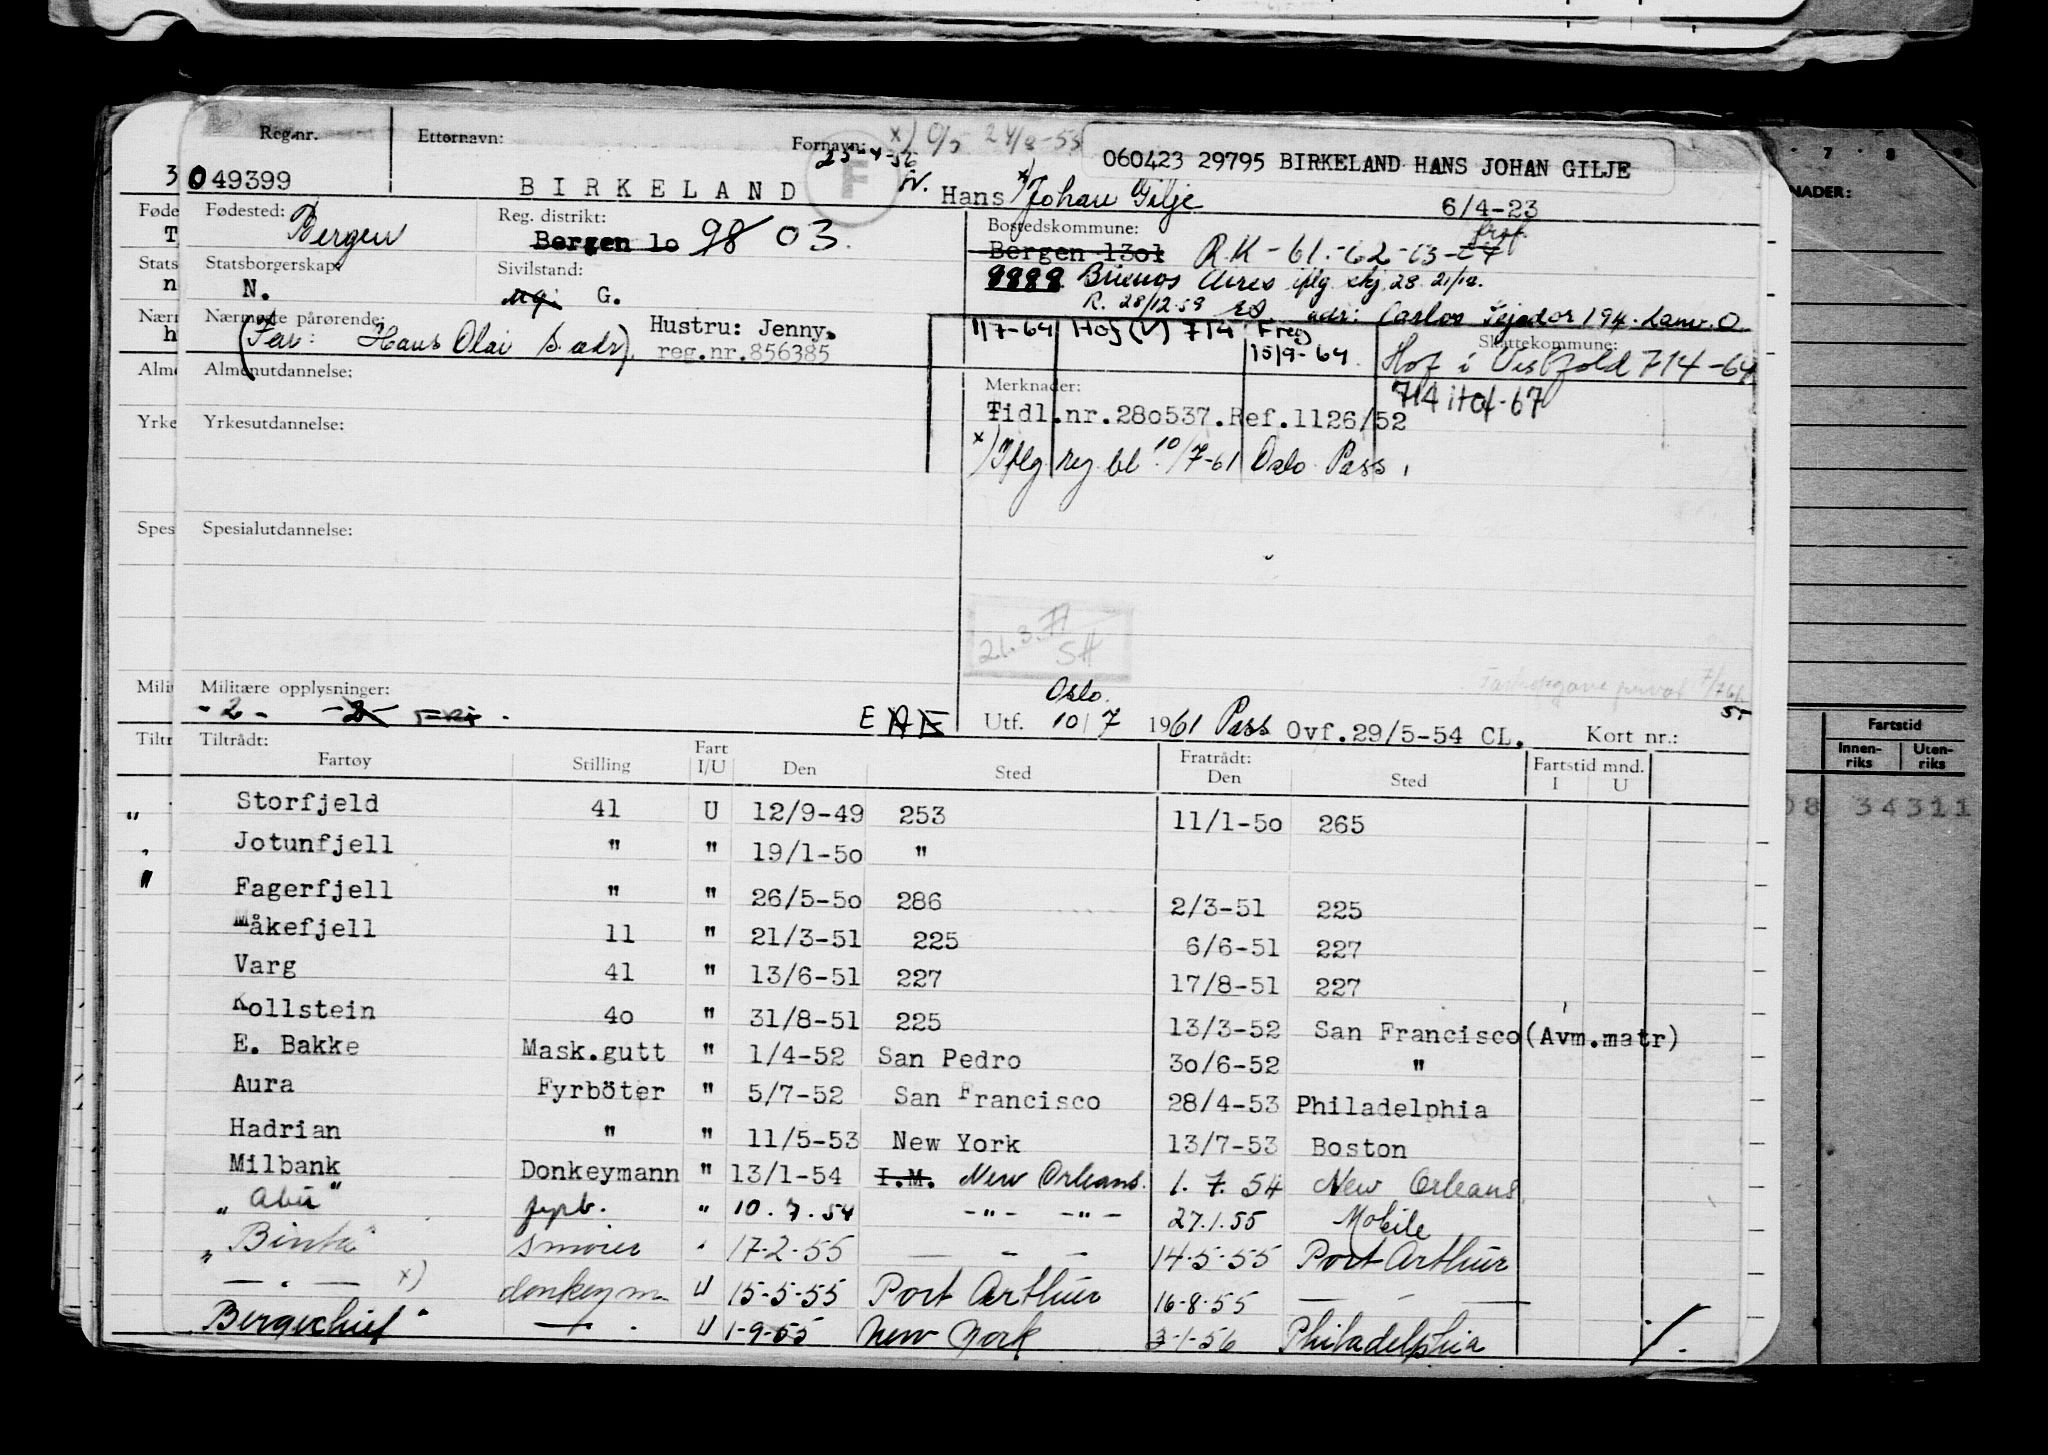 Reg.nr. Etternavn: Fornavn: x) 24/8-55
25-4-56
060423 29795 BIRKELAND HANS JOHAN GILJE
3 049399 BIRKELAND F Hans x) Johan Gilje 6/4-23
Føde Fødested: Bergen Reg. distrikt: Bergen 1o 98 03. Bostedskommune:
Bergen 13o1 R.K - 61.-62-63-64
Stats Statsborgerskap: N. Sivilstand: ug. G.
9999 Buenos Aires iflg. skj. 28. 21/12.
R. 28/12-59 adr: Carlos Tejedor 194. Lanu. O
Nærm Nærmeste pårørende: (Far: Hans Olai s.adr). Hustru: Jenny,
reg.nr.856385
1/7-64 Hof (V) 714 Freg 15/9-64 Skattekommune:
Hof i Vestfold 714-64
714 Hof-67
Alme Almenutdannelse:
Merknader:
Tidl.nr.28o537.Ref.1126/52
Yrke Yrkesutdannelse:
x) Iflg reg bl. 10/7-61 Oslo Pass.
Spes Spesialutdannelse:
21.3.77
SH
Milit Militære opplysninger:
-2- -2- E
Oslo.
Utf. 10/7 1961 Pass Ovf.29/5-54 CL. Kort nr.:
Tiltr Tiltrådt:
Fartøy Stilling Fart I/U Den Sted Fratrådt: Den Sted Fartstid mnd. I U
Storfjeld 41 U 12/9-49 253 11/1-5o 265
Jotunfjell " " 19/1-5o "
Fagerfjell " " 26/5-5o 286 2/3-51 225
Måkefjell 11 " 21/3-51 225 6/6-51 227
Varg 41 " 13/6-51 227 17/8-51 227
Kollstein 4o " 31/8-51 225 13/3-52 San Francisco(Avm.matr)
E. Bakke Mask.gutt " 1/4-52 San Pedro 3o/6-52 "
Aura Fyrböter " 5/7-52 San Francisco 28/4-53 Philadelphia
Hadrian " " 11/5-53 New York 13/7-53 Boston
Milbank Donkeymann " 13/1-54 I.M. New Orleans. 1. 7. 54 New Orleans
"Abu" fyrb. " 10. 7. 54 -"- -"- 27.1.55 Mobile
"Binta" smører " 17-2-55 — - — 14-5-55 Port Arthur
— . — x) donkeym U 15-5-55 Port Arthur 16-8-55 — - —
Bergechief — . U 1-9-55 New York 3-1-56 Philadelphia
7 8 9
NADER:
Fartstid
Innen-riks Uten-riks
08 34311